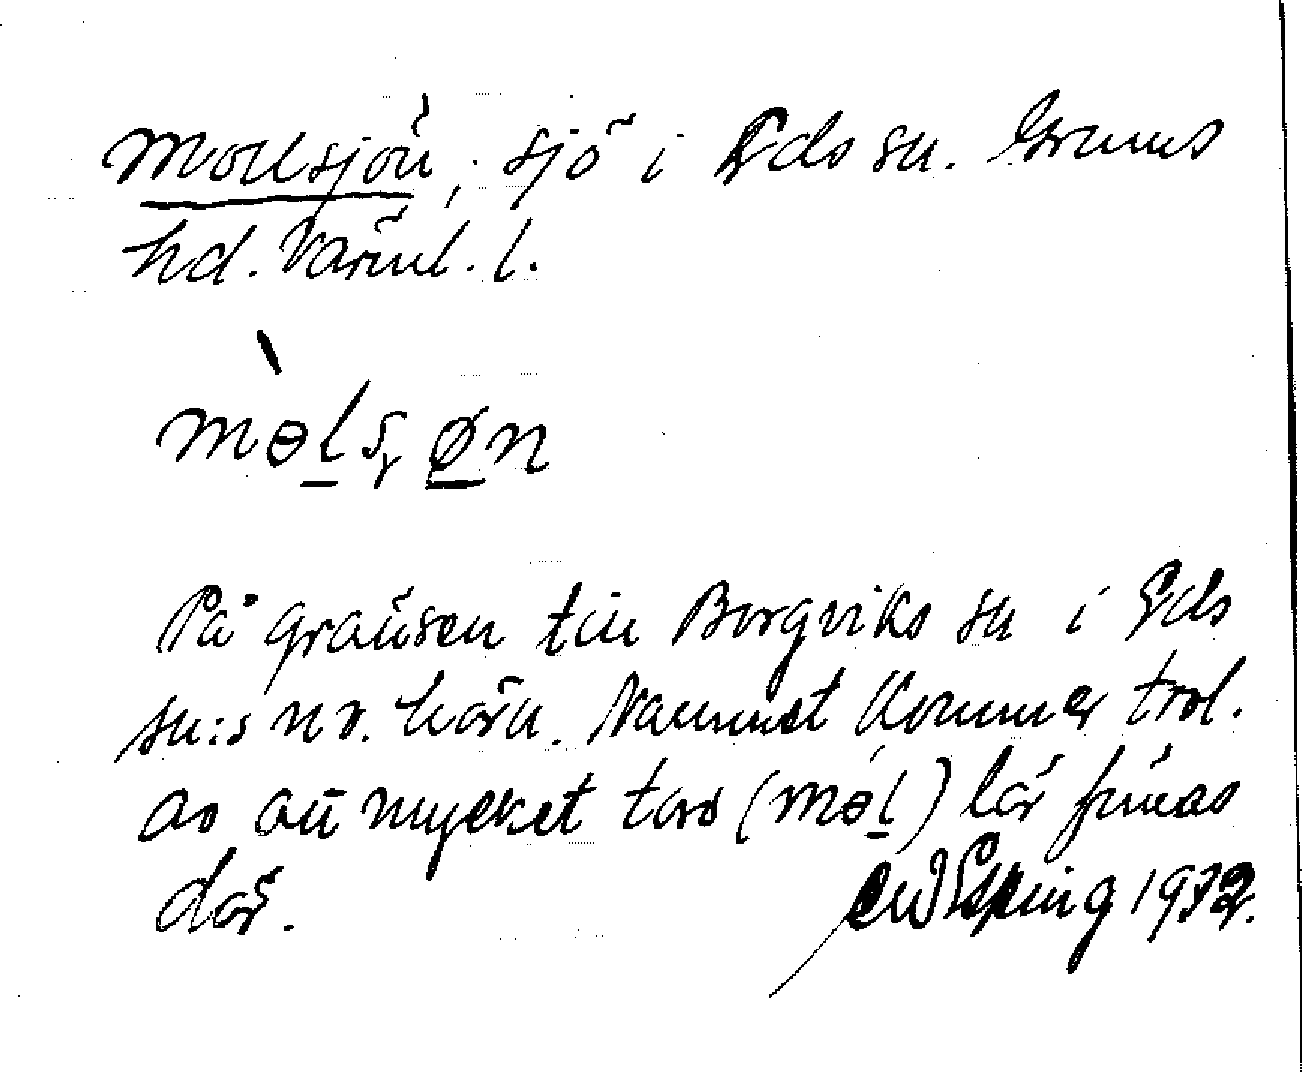 Mollsjön, sjö i Eds sn. Grums
hd. Värml. l.
mèlʂøn
På gränsen till Borgviks sn i Eds
sn:s nv. hörn. Namnet kommer trol.
av att mycket torv (mɵl) lär finnas
där. 1932.